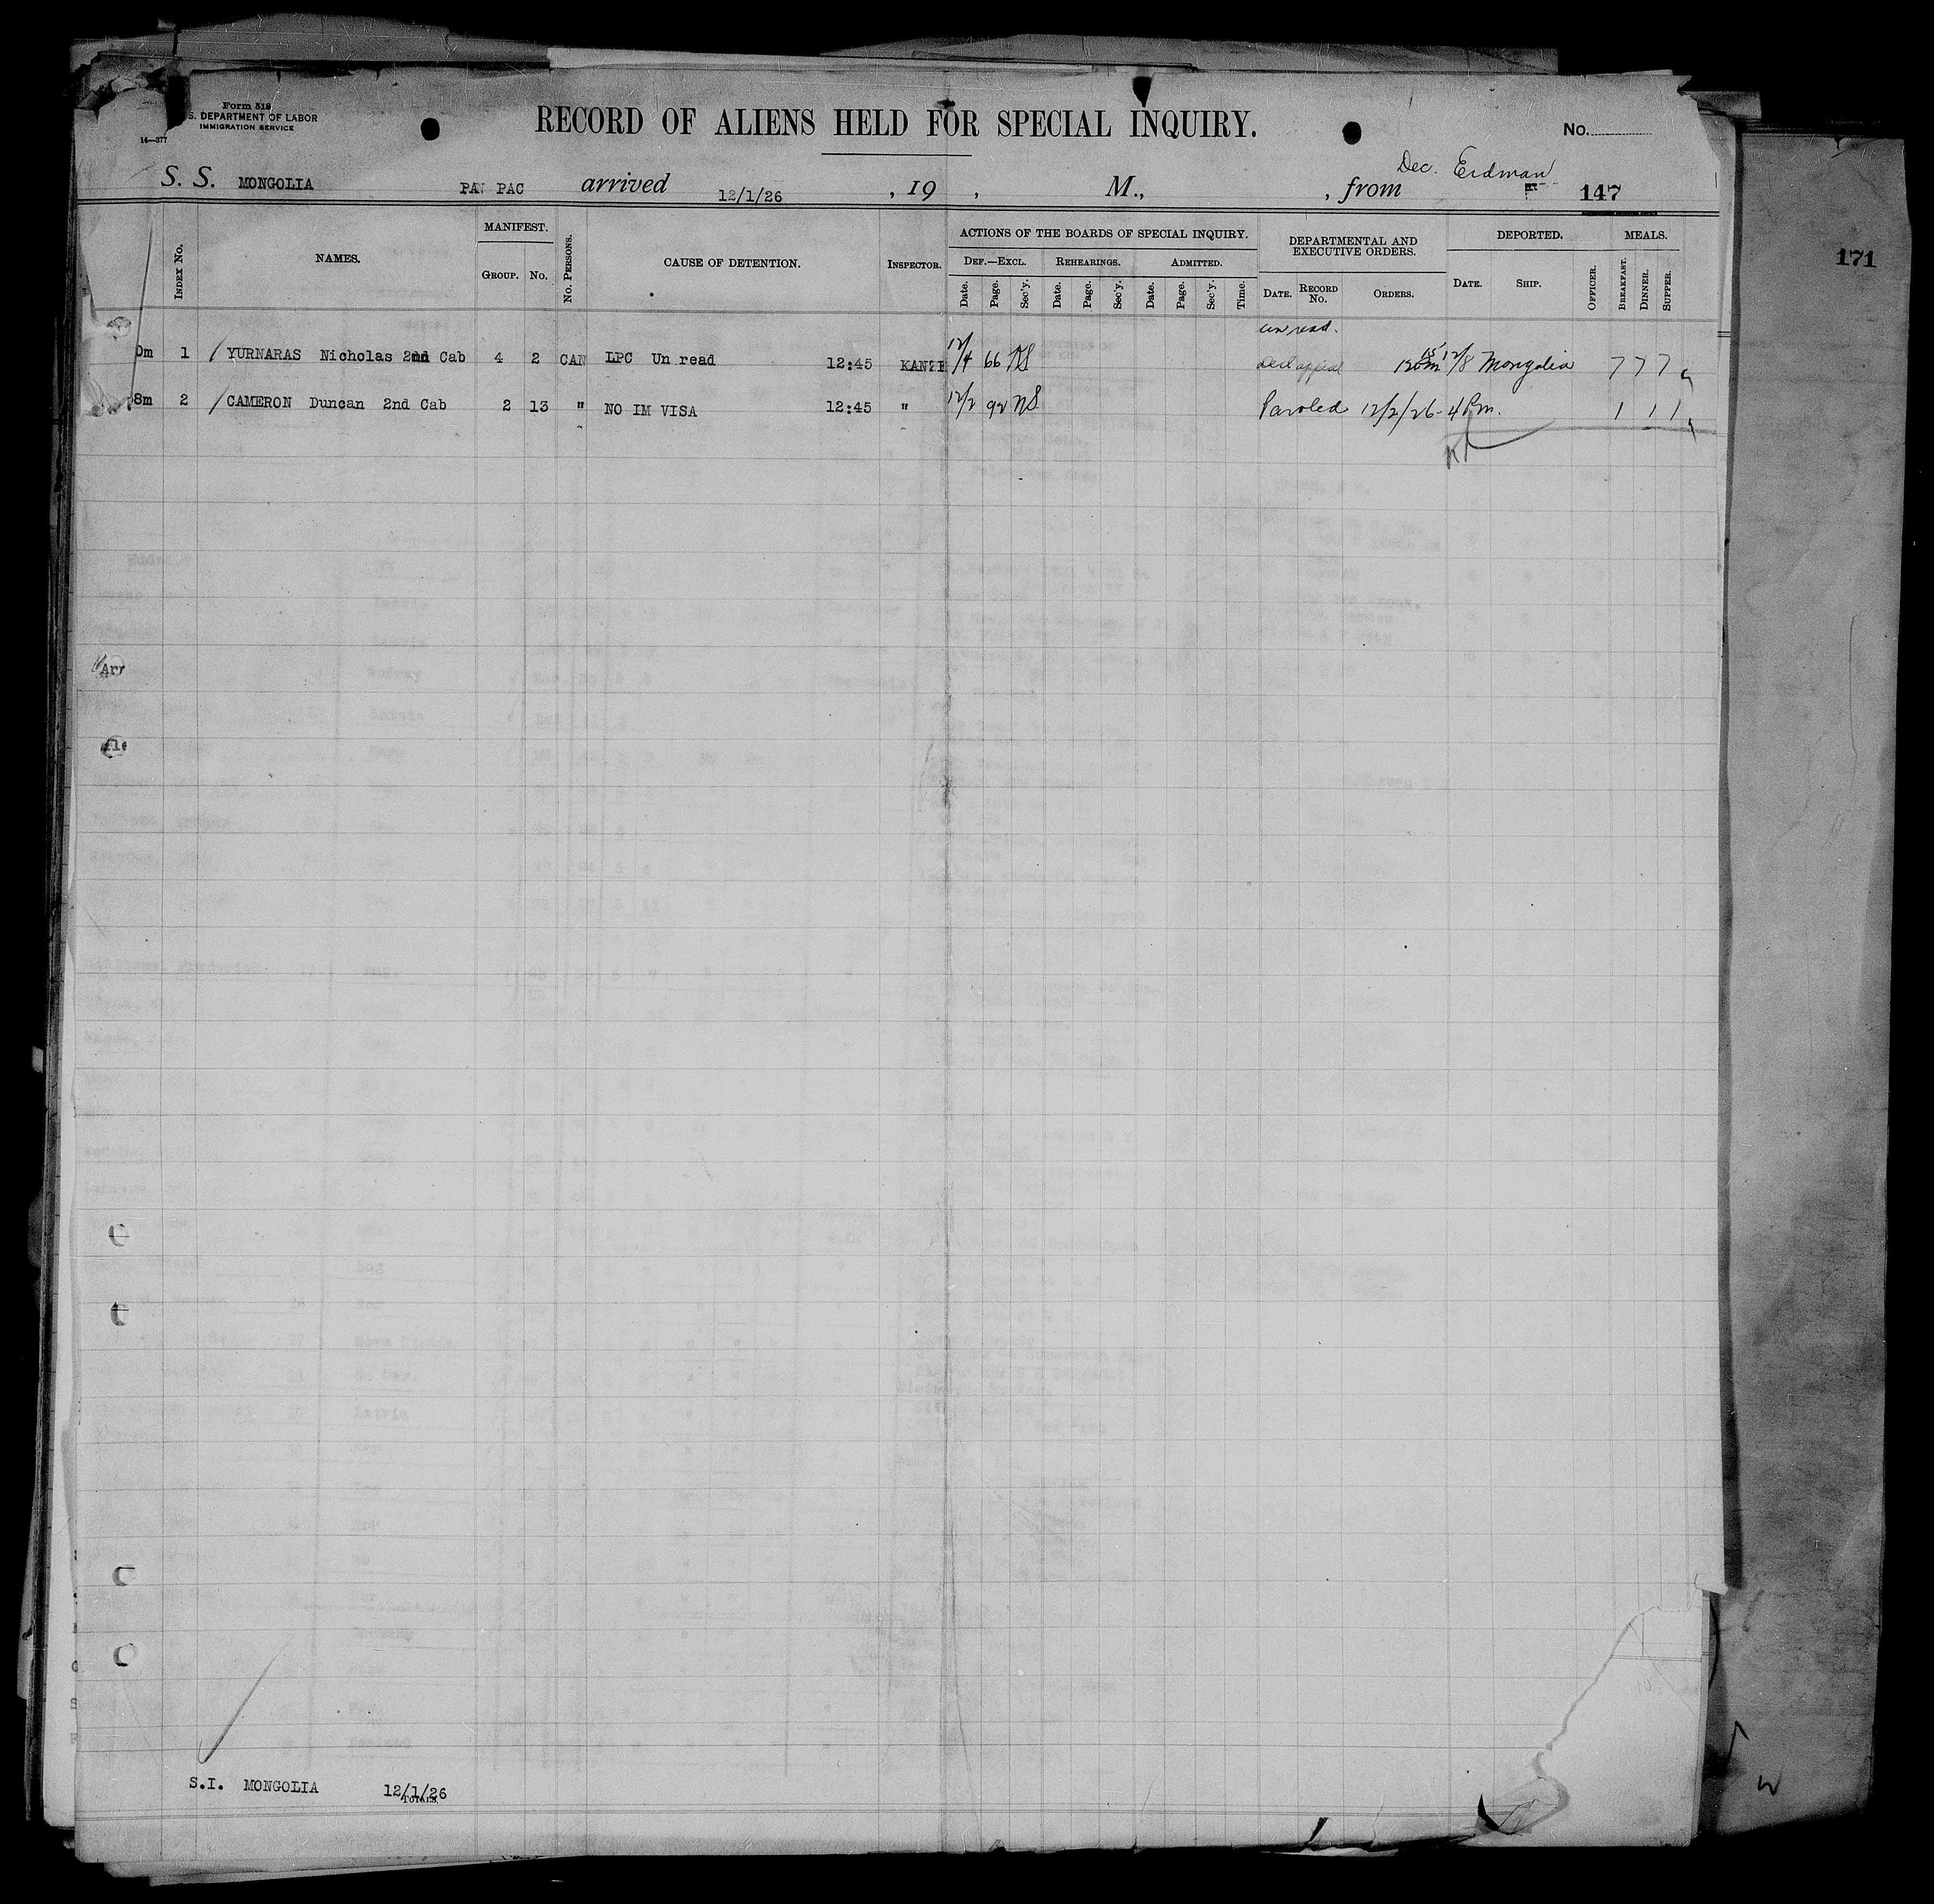 Form 518
S. DEPARTMENT OF LABOR
IMMIGRATION SERVICE
14—377
RECORD OF ALIENS HELD FOR SPECIAL INQUIRY.
No.
S. S. MONGOLIA PAN PAC arrived 12/1/26 , 19 , M., , from Dec. Erdman 147
171
INDEX No. NAMES. MANIFEST. GROUP. No. No. PERSONS. CAUSE OF DETENTION. INSPECTOR. ACTIONS OF THE BOARDS OF SPECIAL INQUIRY. DEPARTMENTAL AND EXECUTIVE ORDERS. DEPORTED. MEALS.
DEF.—EXCL. REHEARINGS. ADMITTED.
Date. Page. Sec'y. Date. Page. Sec'y. Date. Page. Sec'y. Time. DATE. RECORD No. ORDERS. DATE. SHIP. OFFICER. BREAKFAST. DINNER. SUPPER.
un read.
0m 1 / YURNARAS Nicholas 2nd Cab 4 2 CAN LPC Un read 12:45 12/4 66 NS appeal 12/8 Mongolia 7 7 7
8m 2 / CAMERON Duncan 2nd Cab 2 13 " NO IM VISA 12:45 " 12/2 92 NS Paroled 12/2/26 - 4 Pm. 1 1 1
Arr
S.I. MONGOLIA 12/1/26
TOTALS.